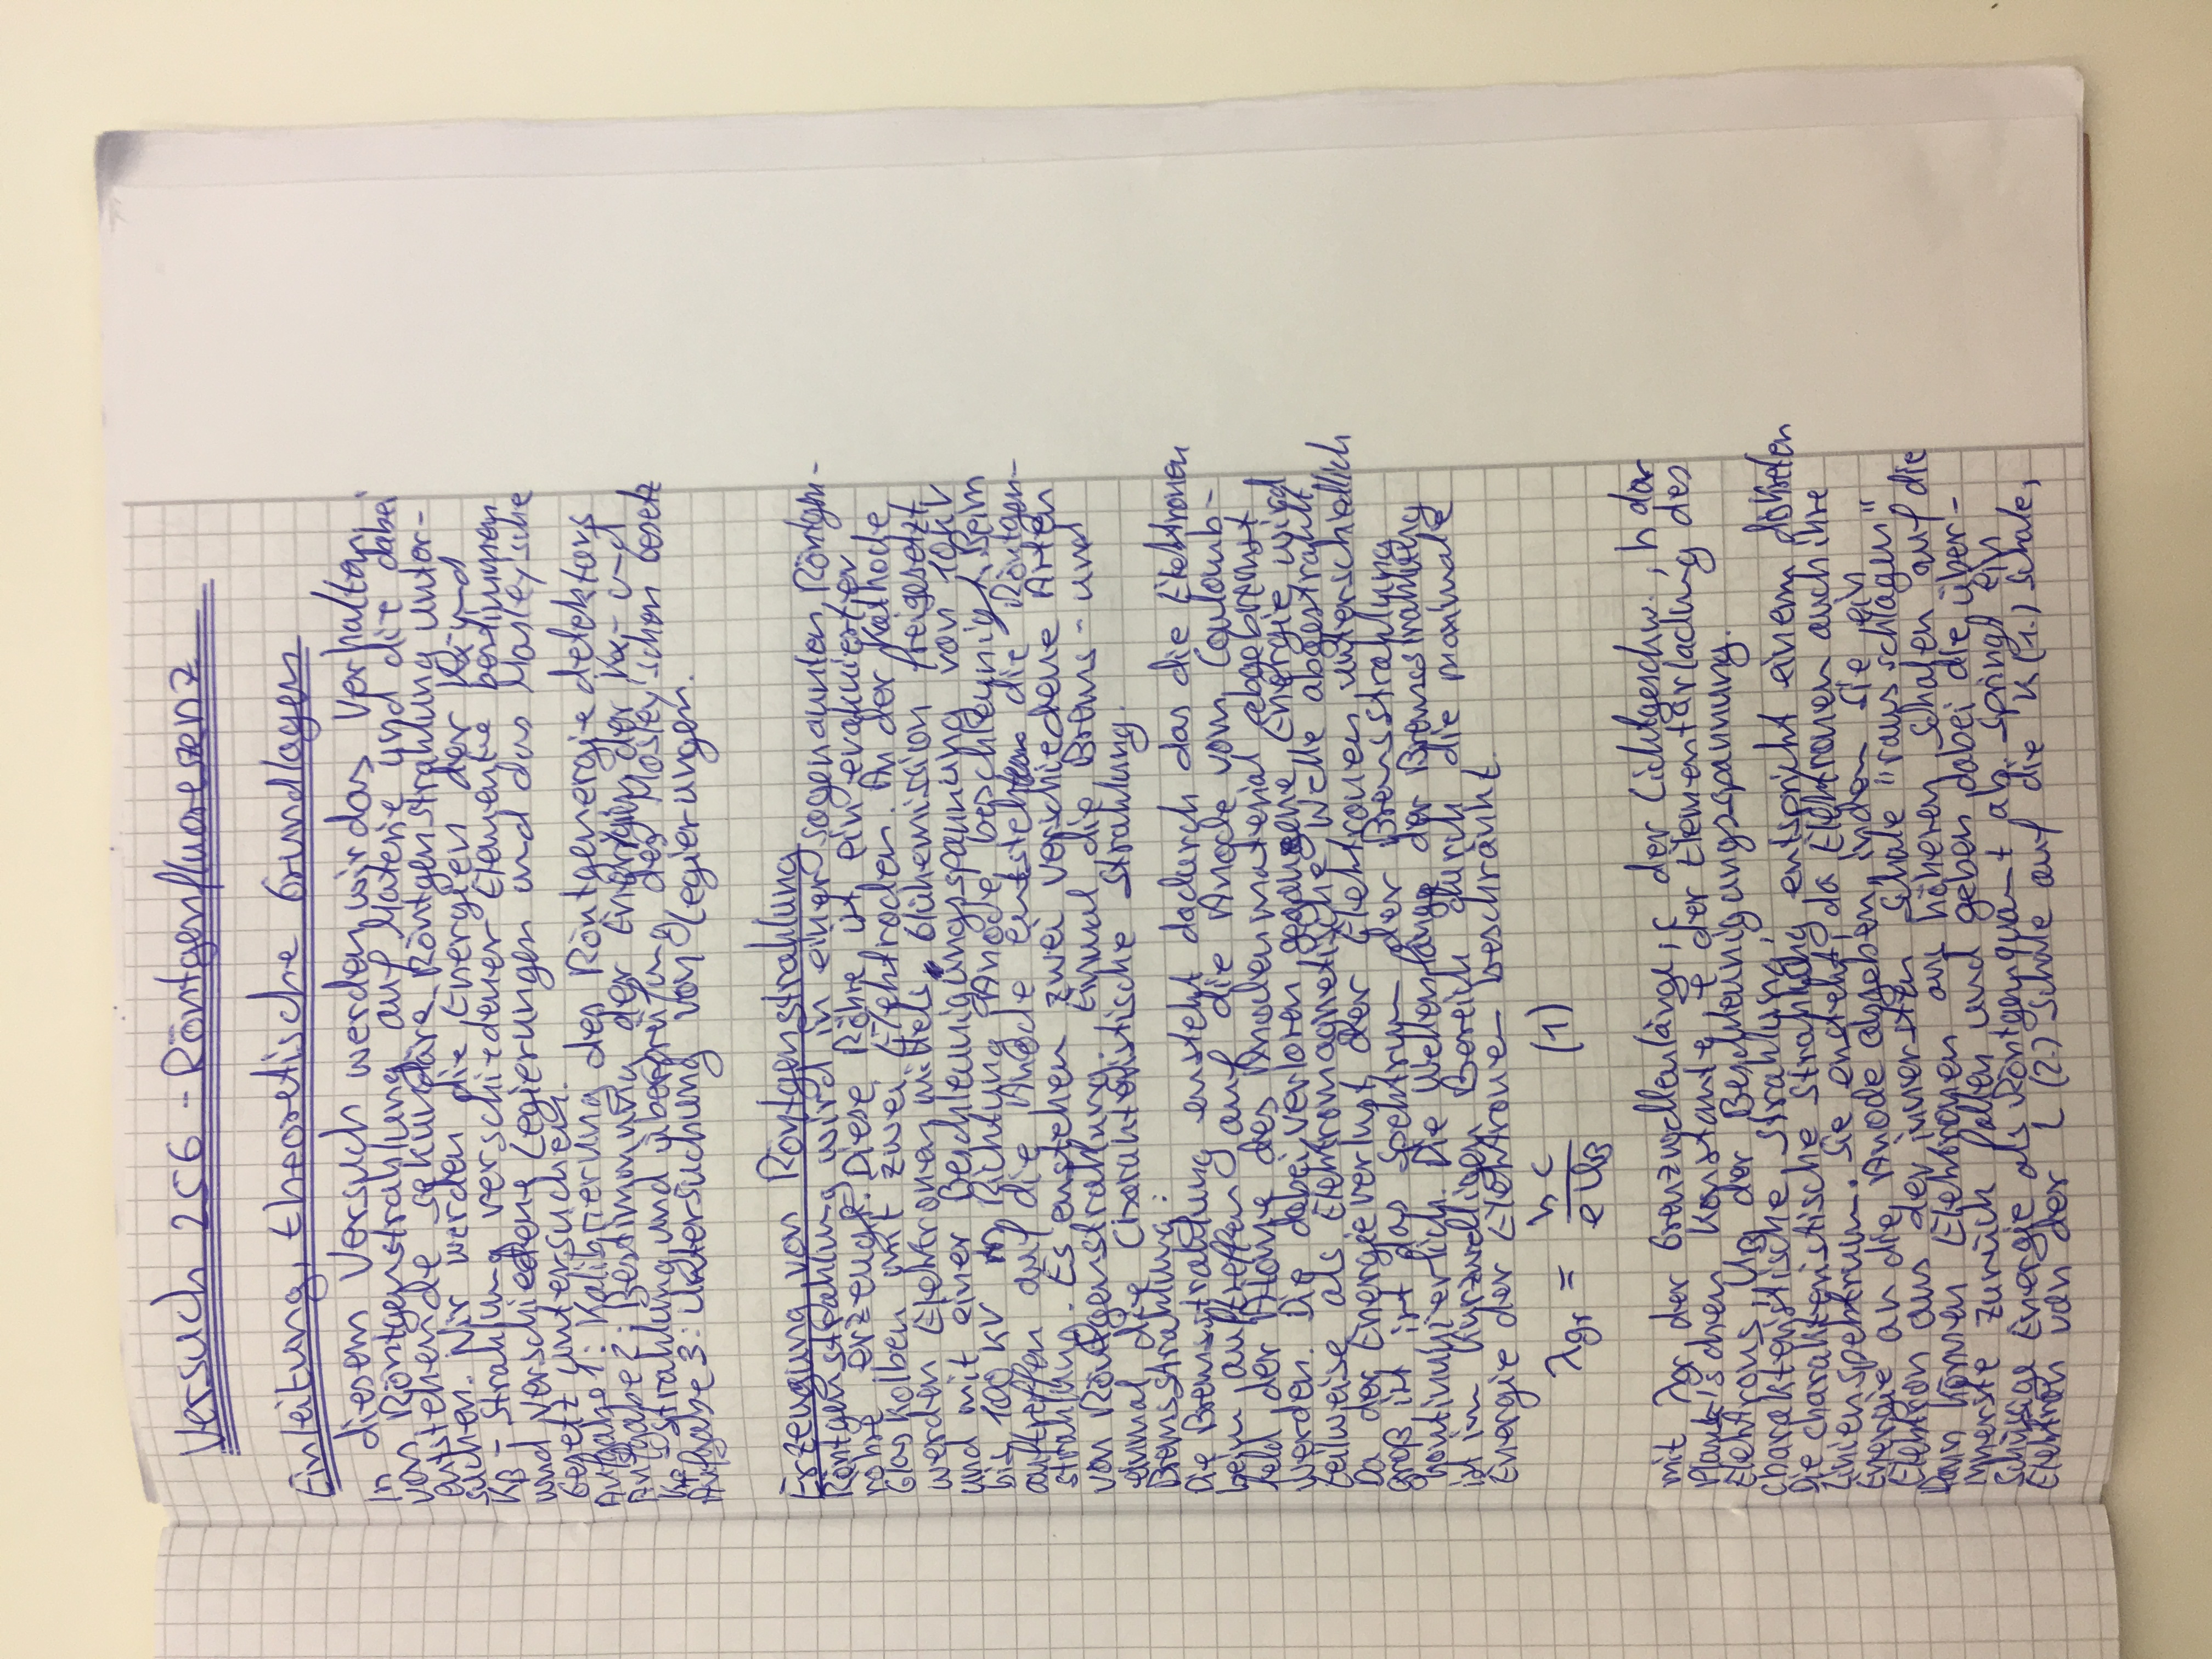 Versuch 256 - Röntgenfluoreszenz
Einleitung, theoretische Grundlagen
In diesem Versuch werden wir das Verhalten
von Röntgenstrahlung auf Materie und die dabei
entstehende sekundäre Röntgenstrahlung unter-
suchen. Wir werden die Energien der Kα- und
Kβ - Strahlung verschiedener Elemente bestimmen
und verschiedene Legierungen und das Mosley'sche
Gesetz untersuchen.
Aufgabe 1: Kalibrierung des Röntgenergiedetektors
Aufgabe 2: Bestimmung der Energien der Kα- und
Kβ - Strahlung und überprüfung des Mosley'schen Gesetz
Aufgabe 3: Untersuchung von Legierungen.
Erzeugung von Röntgenstrahlung
Röntgenstrahlung wird in einer sogenannten Röntgen-
röhre erzeugt. Diese Röhre ist ein evakuierter
Glaskolben mit zwei Elektroden. An der Kathode
werden Elektronen mittels Glühemission freigesetzt
und mit einer Beschleunigungsspannung von 10 kV
bis 100 kV in Richtung Anode beschleunigt. Beim
auftreffen auf die Anode die Röntgen-
strahlung. Es enstehen zwei verschiedene Arten
von Röntgenstrahlung. Einmal die Brems- und
einmal die Charakteristische Strahlung.
Bremsstrahlung:
Die Bremsstrahlung ensteht dadurch das die Elektronen
beim auftreffen auf die Anode vom Coulomb-
feld der Atome des Anodenmaterial abgebremst
werden. Die dabei verloren gegangene Energie wird
teilweise als Elektromagnetische Welle abgestrahlt.
Da der Energieverlust der Elektronen unterschiedlich
groß ist, ist das Spektrum der Bremsstrahlung
kontinuierlich. Die Wellenlänge der Bremsstrahlung
ist im kurzwelligen Bereich durch die maximale
Energie der Elektronen beschränkt.
λgr = h c / e UB (1)
mit λgr der Grenzwellenlänge, c der Lichtgeschw., h der
Plank'schen Konstante, e der Elementarladung des
Elektrons, UB der Beschleunigungsspannung.
charakteristische Strahlung:
Die charakteristische Strahlung entspricht einem diskreten
Linienspektrum. Sie ensteht, da Elektronen auch ihre
Energie an die Anode abgeben, indem sie ein
Elektron aus der innersten Schale "rausschlagen"
Dann können Elektronen aus höheren Schalen auf die
innerste zurück fallen und geben dabei die über-
schüssige Energie als Röntgenquant ab. Springt ein
Elektron von der L (2.) Schale auf die K (1.) Schale,